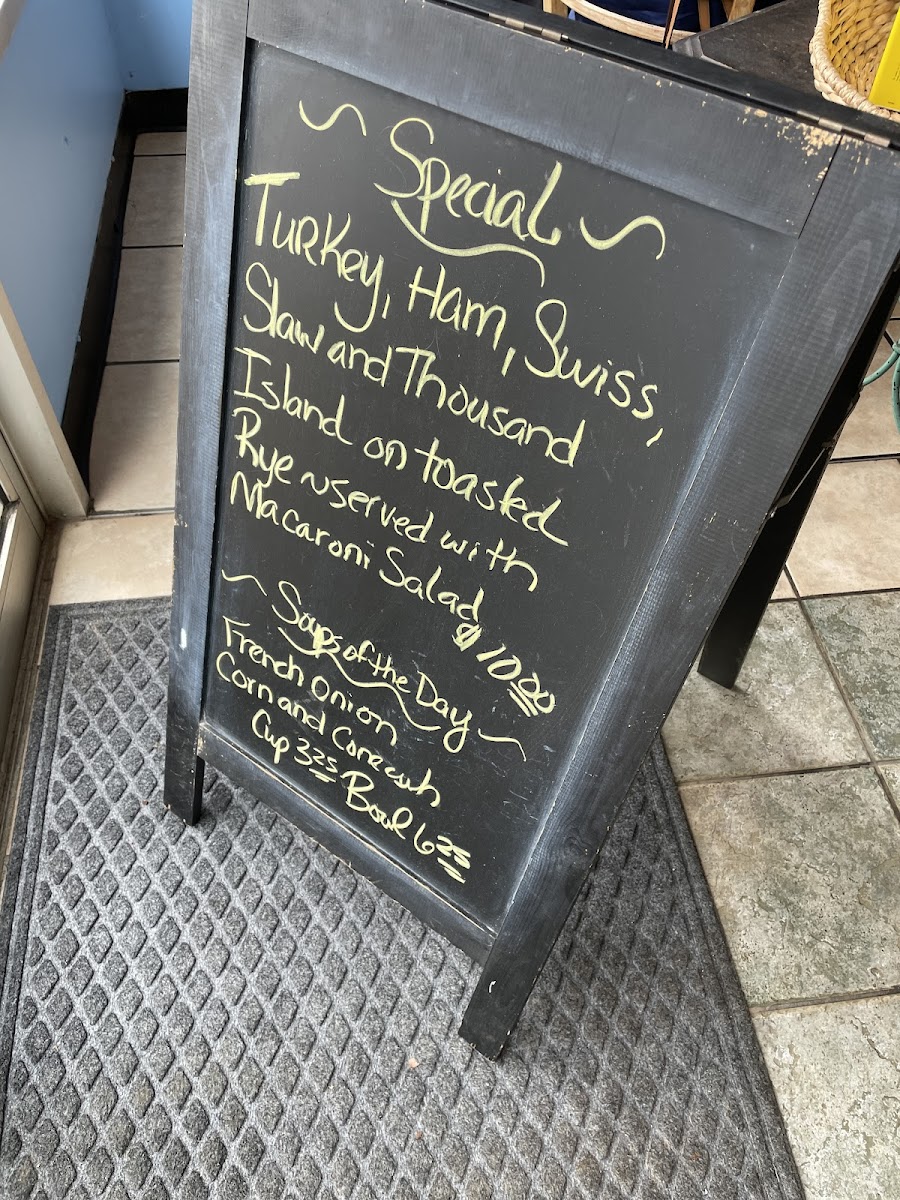 ~ Special ~
Turkey, Ham, Swiss,
Slaw and Thousand
Island on toasted
Rye ~ served with
Macaroni Salad
$10.00
~ Soups of the Day ~
French Onion
Corn and
Cup 3.25 Bowl 6.25